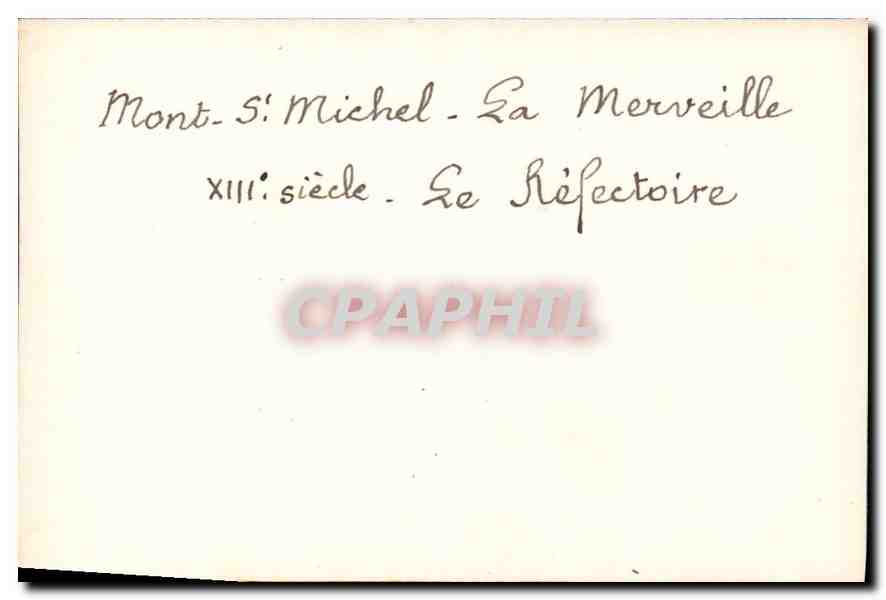 Mont-St Michel - La Merveille
XIIIe siècle - Le Réfectoire
CPAPHIL